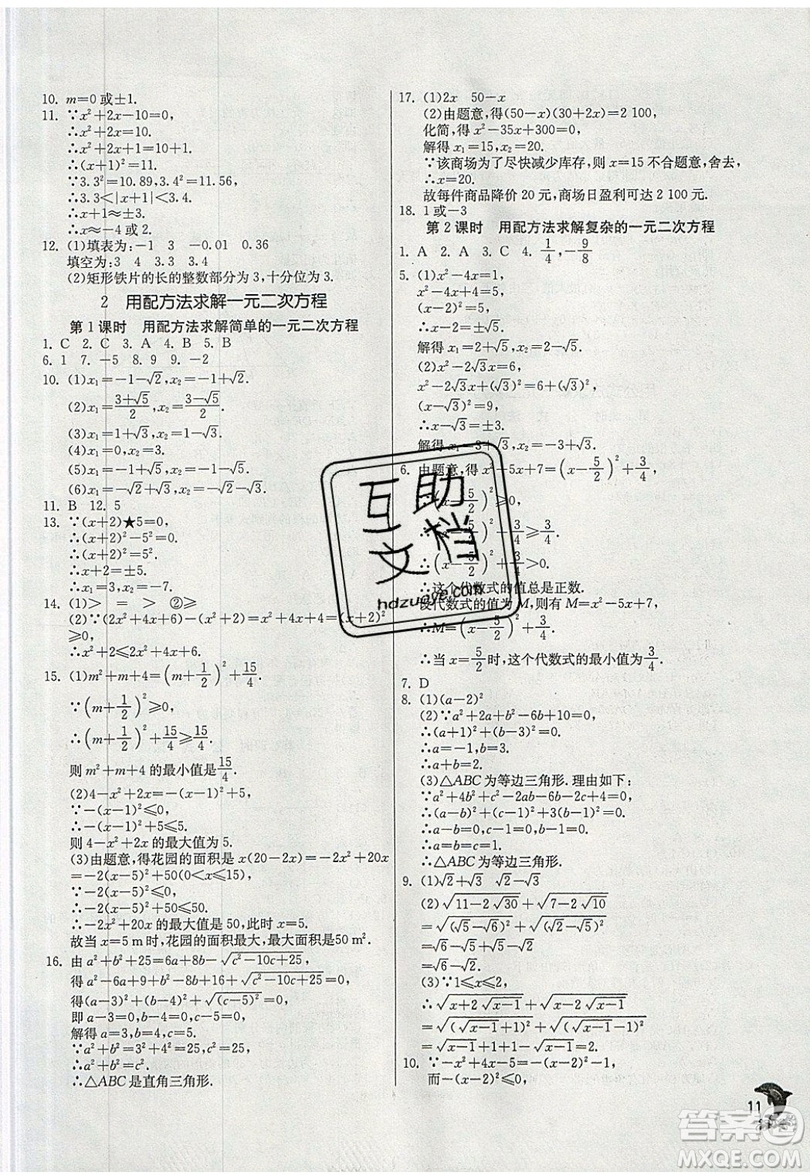 10. m=0或±1.
11. ∵x²+2x-10=0,
∴x²+2x=10.
∴x²+2x+1=10+1.
∴(x+1)²=11.
∵3.3²=10.89,3.4²=11.56.
∴3.3<|x+1|<3.4.
∴x+1≈±3.
∴x≈-4或2.
12. (1)填表为:-1 3 -0.01 0.36
填空为:3 4 3.3 3.4
(2)矩形铁片的长的整数部分为3,十分位为3.
2 用配方法求解一元二次方程
第1课时 用配方法求解简单的一元二次方程
1. C 2. C 3. A 4. B 5. B
6. 1 7. -5 8. 9 9. -2
10. (1)x₁=-1-√2,x₂=-1+√2.
(2)x₁=(3+√5)/2,x₂=(3-√5)/2.
(3)x₁=-1-√6,x₂=-1+√6.
(4)x₁=0,x₂=2.
(5)x₁=-1-√3,x₂=-1+√3.
(6)x₁=-√2+√3,x₂=-√2-√3.
11. B 12. 5
13. ∵(x+2)★5=0,
∴(x+2)²-5²=0.
∴x+2=±5.
∴x₁=3,x₂=-7.
14. (1)> = > ②≥
(2)∵(2x²+4x+6)-(x²+2)=x²+4x+4=(x+2)²
≥0,
∴x²+2≤2x²+4x+6.
15. (1)m²+m+4=(m+1/2)²+15/4.
∵(m+1/2)²≥0,
∴(m+1/2)²+15/4≥15/4.
则m²+m+4的最小值是15/4.
(2)4-x²+2x=-(x-1)²+5,
∵-(x-1)²≤0,
∴-(x-1)²+5≤5.
则4-x²+2x的最大值为5.
(3)由题意,得花园的面积是x(20-2x)=-2x²+20x
=-2(x-5)²+50,
∵-2(x-5)²≤0,
∴-2(x-5)²+50≤50.
∴-2x²+20x的最大值是50,此时x=5.
故当x=5 m时,花园的面积最大,最大面积是50 m².
16. 由a²+b²+25=6a+8b-√(c²-10c+25),
得a²-6a+9+b²-8b+16+√(c²-10c+25)=0,
得(a-3)²+(b-4)²+√((c-5)²)=0,
即a-3=0,b-4=0,c-5=0,
解得a=3,b=4,c=5.
∵a²+b²=25=c²,
∴a²+b²=c².
∴△ABC是直角三角形.
17. (1)2x 50-x
(2)由题意,得(50-x)(30+2x)=2 100,
化简,得x²-35x+300=0,
解得x₁=15,x₂=20.
∵该商场为了尽快减少库存,则x=15不合题意,舍去.
∴x=20.
故每件商品降价20元,商场日盈利可达2 100元.
18. 1或-3
第2课时 用配方法求解复杂的一元二次方程
1. A 2. A 3. C 4. 1/4,-9/8
5. (1)x²-4x=1,
x²-4x+4=5,
(x-2)²=5,
∴x-2=±√5.
解得x₁=2+√5,x₂=2-√5.
(2)x²-2√3x=6,
x²-2√3x+(√3)²=6+(√3)²,
(x-√3)²=9,
∴x-√3=±3.
解得x₁=3+√3,x₂=-3+√3.
6. 由题意,得x²-5x+7=(x-5/2)²+3/4,
∵(x-5/2)²≥0,
∴(x-5/2)²+3/4≥3/4.
∴(x-5/2)²+3/4>0.
∴这个代数式的值总是正数.
设代数式的值为M,则有M=x²-5x+7,
∴M=(x-5/2)²+3/4.
∴当x=5/2时,这个代数式的最小值为3/4.
7. D
8. (1)(a-2)²
(2)∵a²+2a+b²-6b+10=0,
∴(a+1)²+(b-3)²=0.
∴a=-1,b=3.
∴a+b=2.
(3)△ABC为等边三角形.理由如下:
∵a²+4b²+c²-2ab-6b-2c+4=0,
∴(a-b)²+(c-1)²+3(b-1)²=0.
∴a-b=0,c-1=0,b-1=0.
∴a=b=c=1.
∴△ABC为等边三角形.
9. (1)√2+√3 √2-√3
(2)√(11-2√30)+√(7-2√10)
=√((√6-√5)²)+√((√5-√2)²)
=√6-√5+√5-√2
=√6-√2.
(3)∵1≤x≤2,
∴√(x+2√(x-1))+√(x-2√(x-1))
=√((√(x-1)+1)²)+√((√(x-1)-1)²)
=√(x-1)+1+1-√(x-1)=2.
10. ∵-x²+4x-5=-(x-2)²-1,
而-(x-2)²≤0,
11
互助文档
hdzuoye.com
答案圈
MXQE.COM